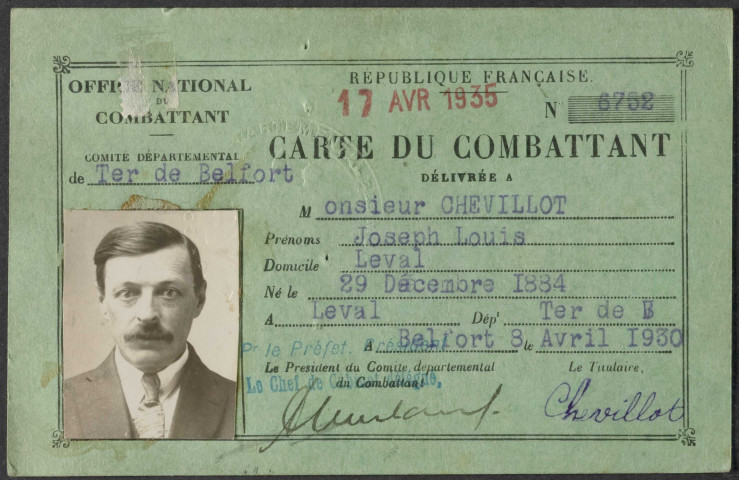 OFFICE NATIONAL
DU
COMBATTANT
COMITÉ DÉPARTEMENTAL
de Ter de Belfort
RÉPUBLIQUE FRANÇAISE.
17 AVR 1935
N 6752
CARTE DU COMBATTANT
DÉLIVRÉE A
M onsieur CHEVILLOT
Prénoms Joseph Louis
Domicile Leval
Né le 29 Décembre 1884
A Leval Dépt Ter de B
A Belfort 8 le Avril 1930
Pr le Préfet. Président
Le President du Comite departemental
du Combattant
Le Chef de
Le Titulaire,
Chevillot